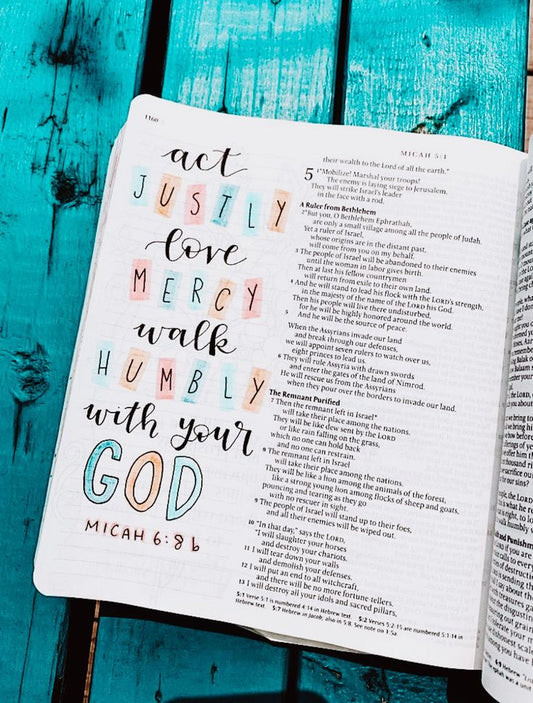 1160
act
JUSTLY
love
MERCY
walk
HUMBLY
with your
GOD
MICAH 6:8 b
MICAH 5:1
their wealth to the Lord of all the earth."
5 1"Mobilize! Marshal your troops!
The enemy is laying siege to Jerusalem.
They will strike Israel's leader
in the face with a rod.
A Ruler from Bethlehem
2"But you, O Bethlehem Ephrathah,
are only a small village among all the people of Judah.
Yet a ruler of Israel,
whose origins are in the distant past,
will come from you on my behalf.
3 The people of Israel will be abandoned to their enemies
until the woman in labor gives birth.
Then at last his fellow countrymen
will return from exile to their own land.
4 And he will stand to lead his flock with the LORD's strength,
in the majesty of the name of the LORD his God.
Then his people will live there undisturbed,
for he will be highly honored around the world.
5 And he will be the source of peace.
When the Assyrians invade our land
and break through our defenses,
we will appoint seven rulers to watch over us,
eight princes to lead us.
6 They will rule Assyria with drawn swords
and enter the gates of the land of Nimrod.
He will rescue us from the Assyrians
when they pour over the borders to invade our land.
The Remnant Purified
7 Then the remnant left in Israel*
will take their place among the nations.
They will be like dew sent by the LORD
or like rain falling on the grass,
which no one can hold back
and no one can restrain.
8 The remnant left in Israel
will take their place among the nations.
They will be like a lion among the animals of the forest,
like a strong young lion among flocks of sheep and goats,
pouncing and tearing as they go
with no rescuer in sight.
9 The people of Israel will stand up to their foes,
and all their enemies will be wiped out.
10 "In that day," says the LORD,
"I will slaughter your horses
and destroy your chariots.
11 I will tear down your walls
and demolish your defenses.
12 I will put an end to all witchcraft,
and there will be no more fortune tellers.
13 I will destroy all your idols and sacred pillars,
5:1 Verse 5:1 is numbered 4:14 in Hebrew text. 5:2 Verses 5:2-15 are numbered 5:1-14 in
Hebrew text. 5:7 Hebrew in Jacob; also in 5:8. See note on 1:5a.